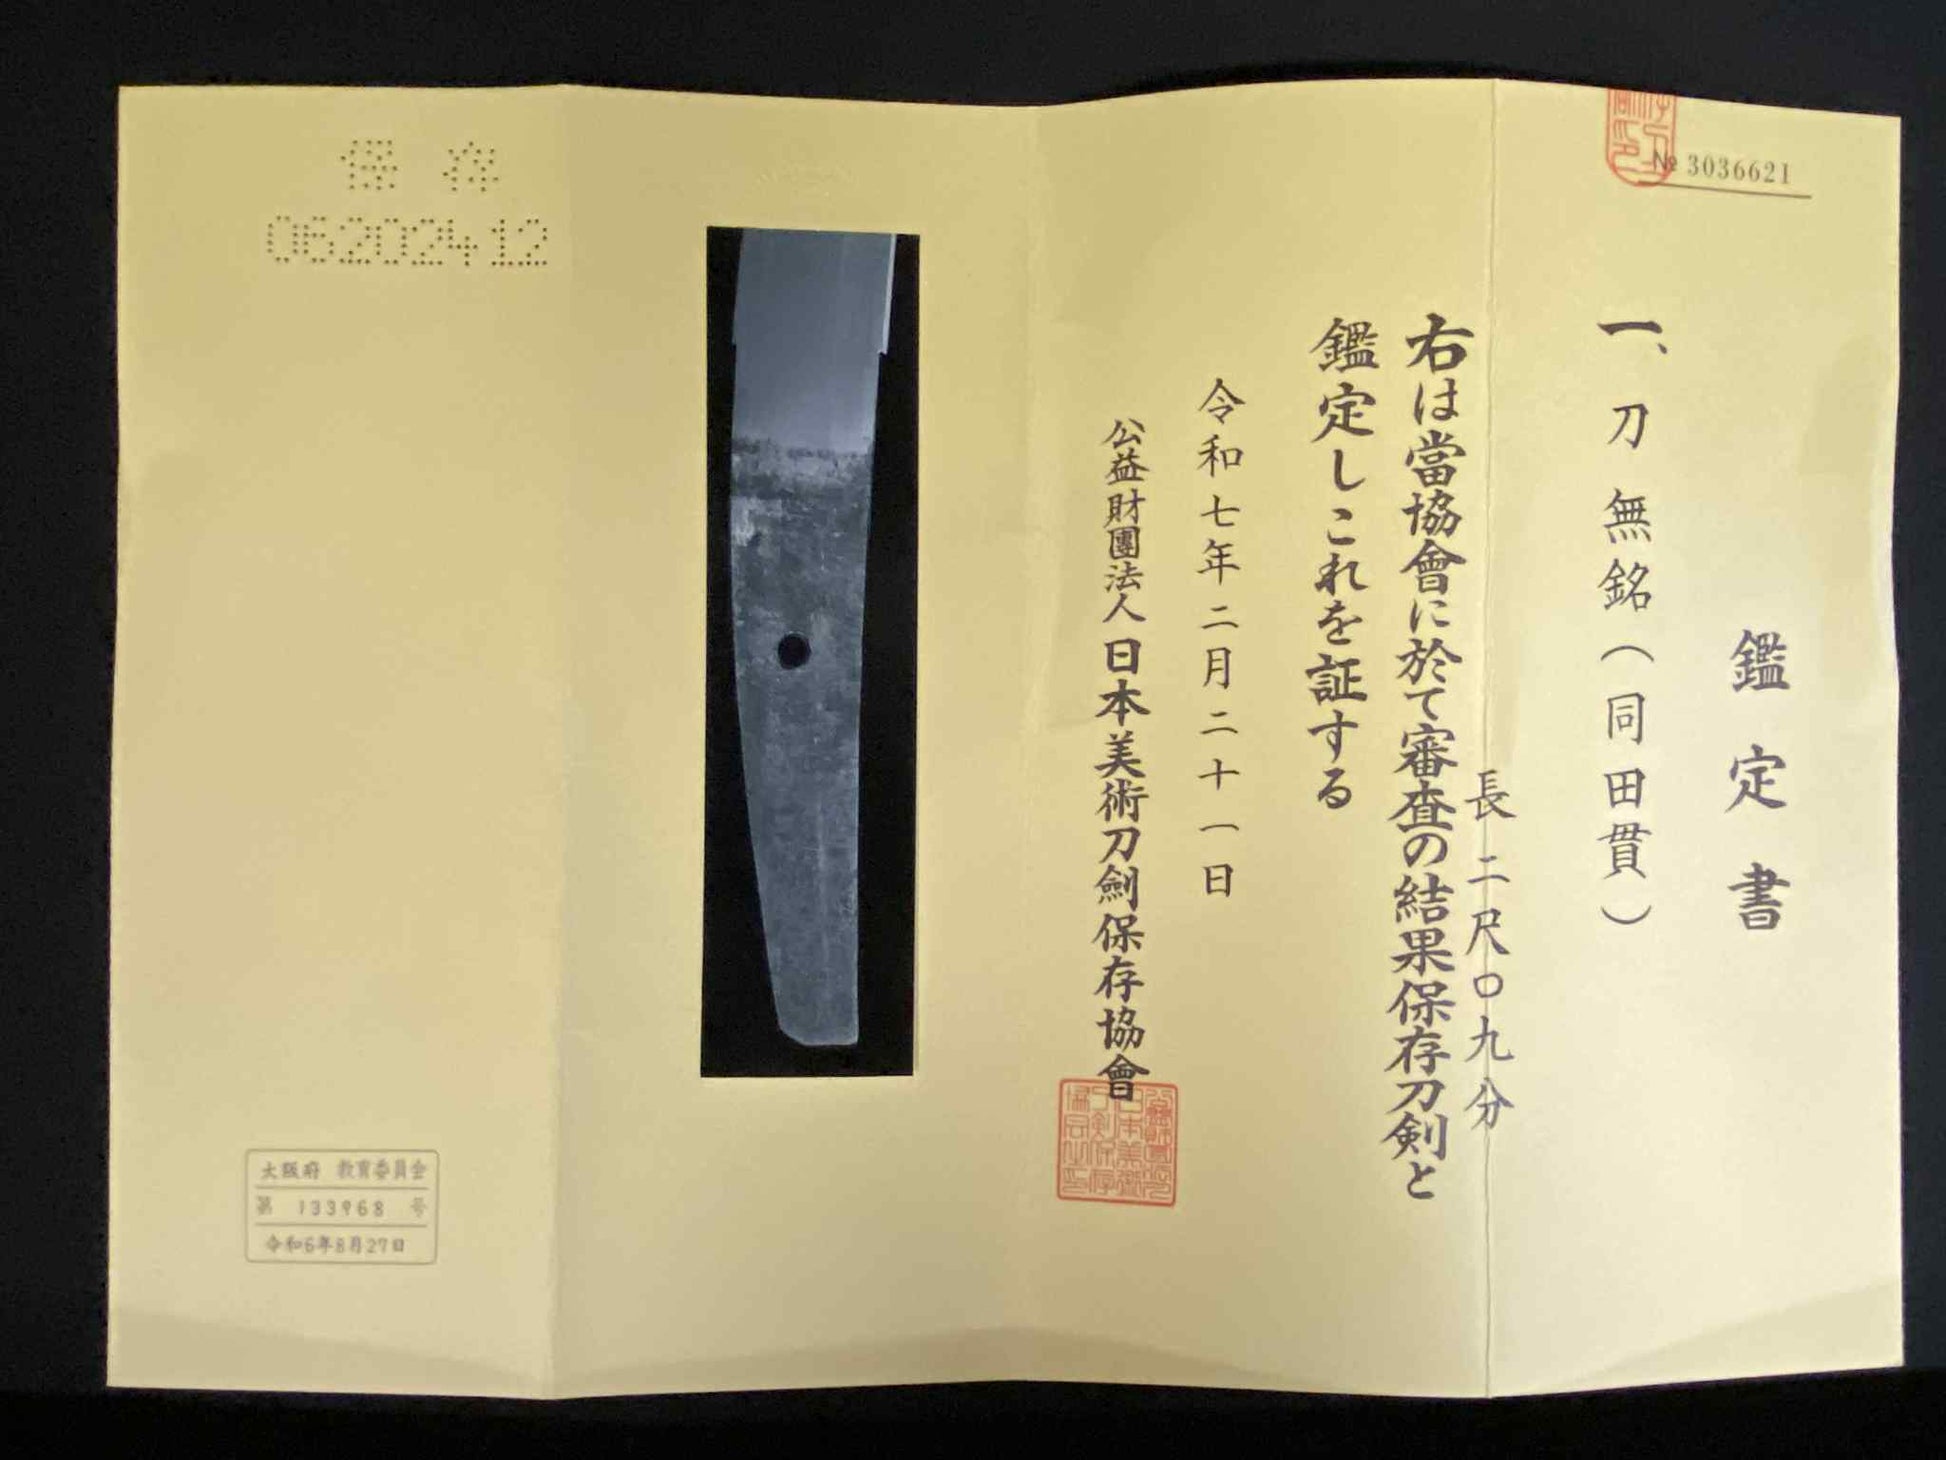 № 3036621
鑑定書
一、刀 無銘(同田貫)
長 二尺〇九分
右は當協會に於て審査の結果保存刀剣と
鑑定しこれを証する
令和七年二月二十一日
公益財團法人日本美術刀劍保存協會
保存
06202412
大阪府 教育委員会
第 133968 号
令和6年8月27日